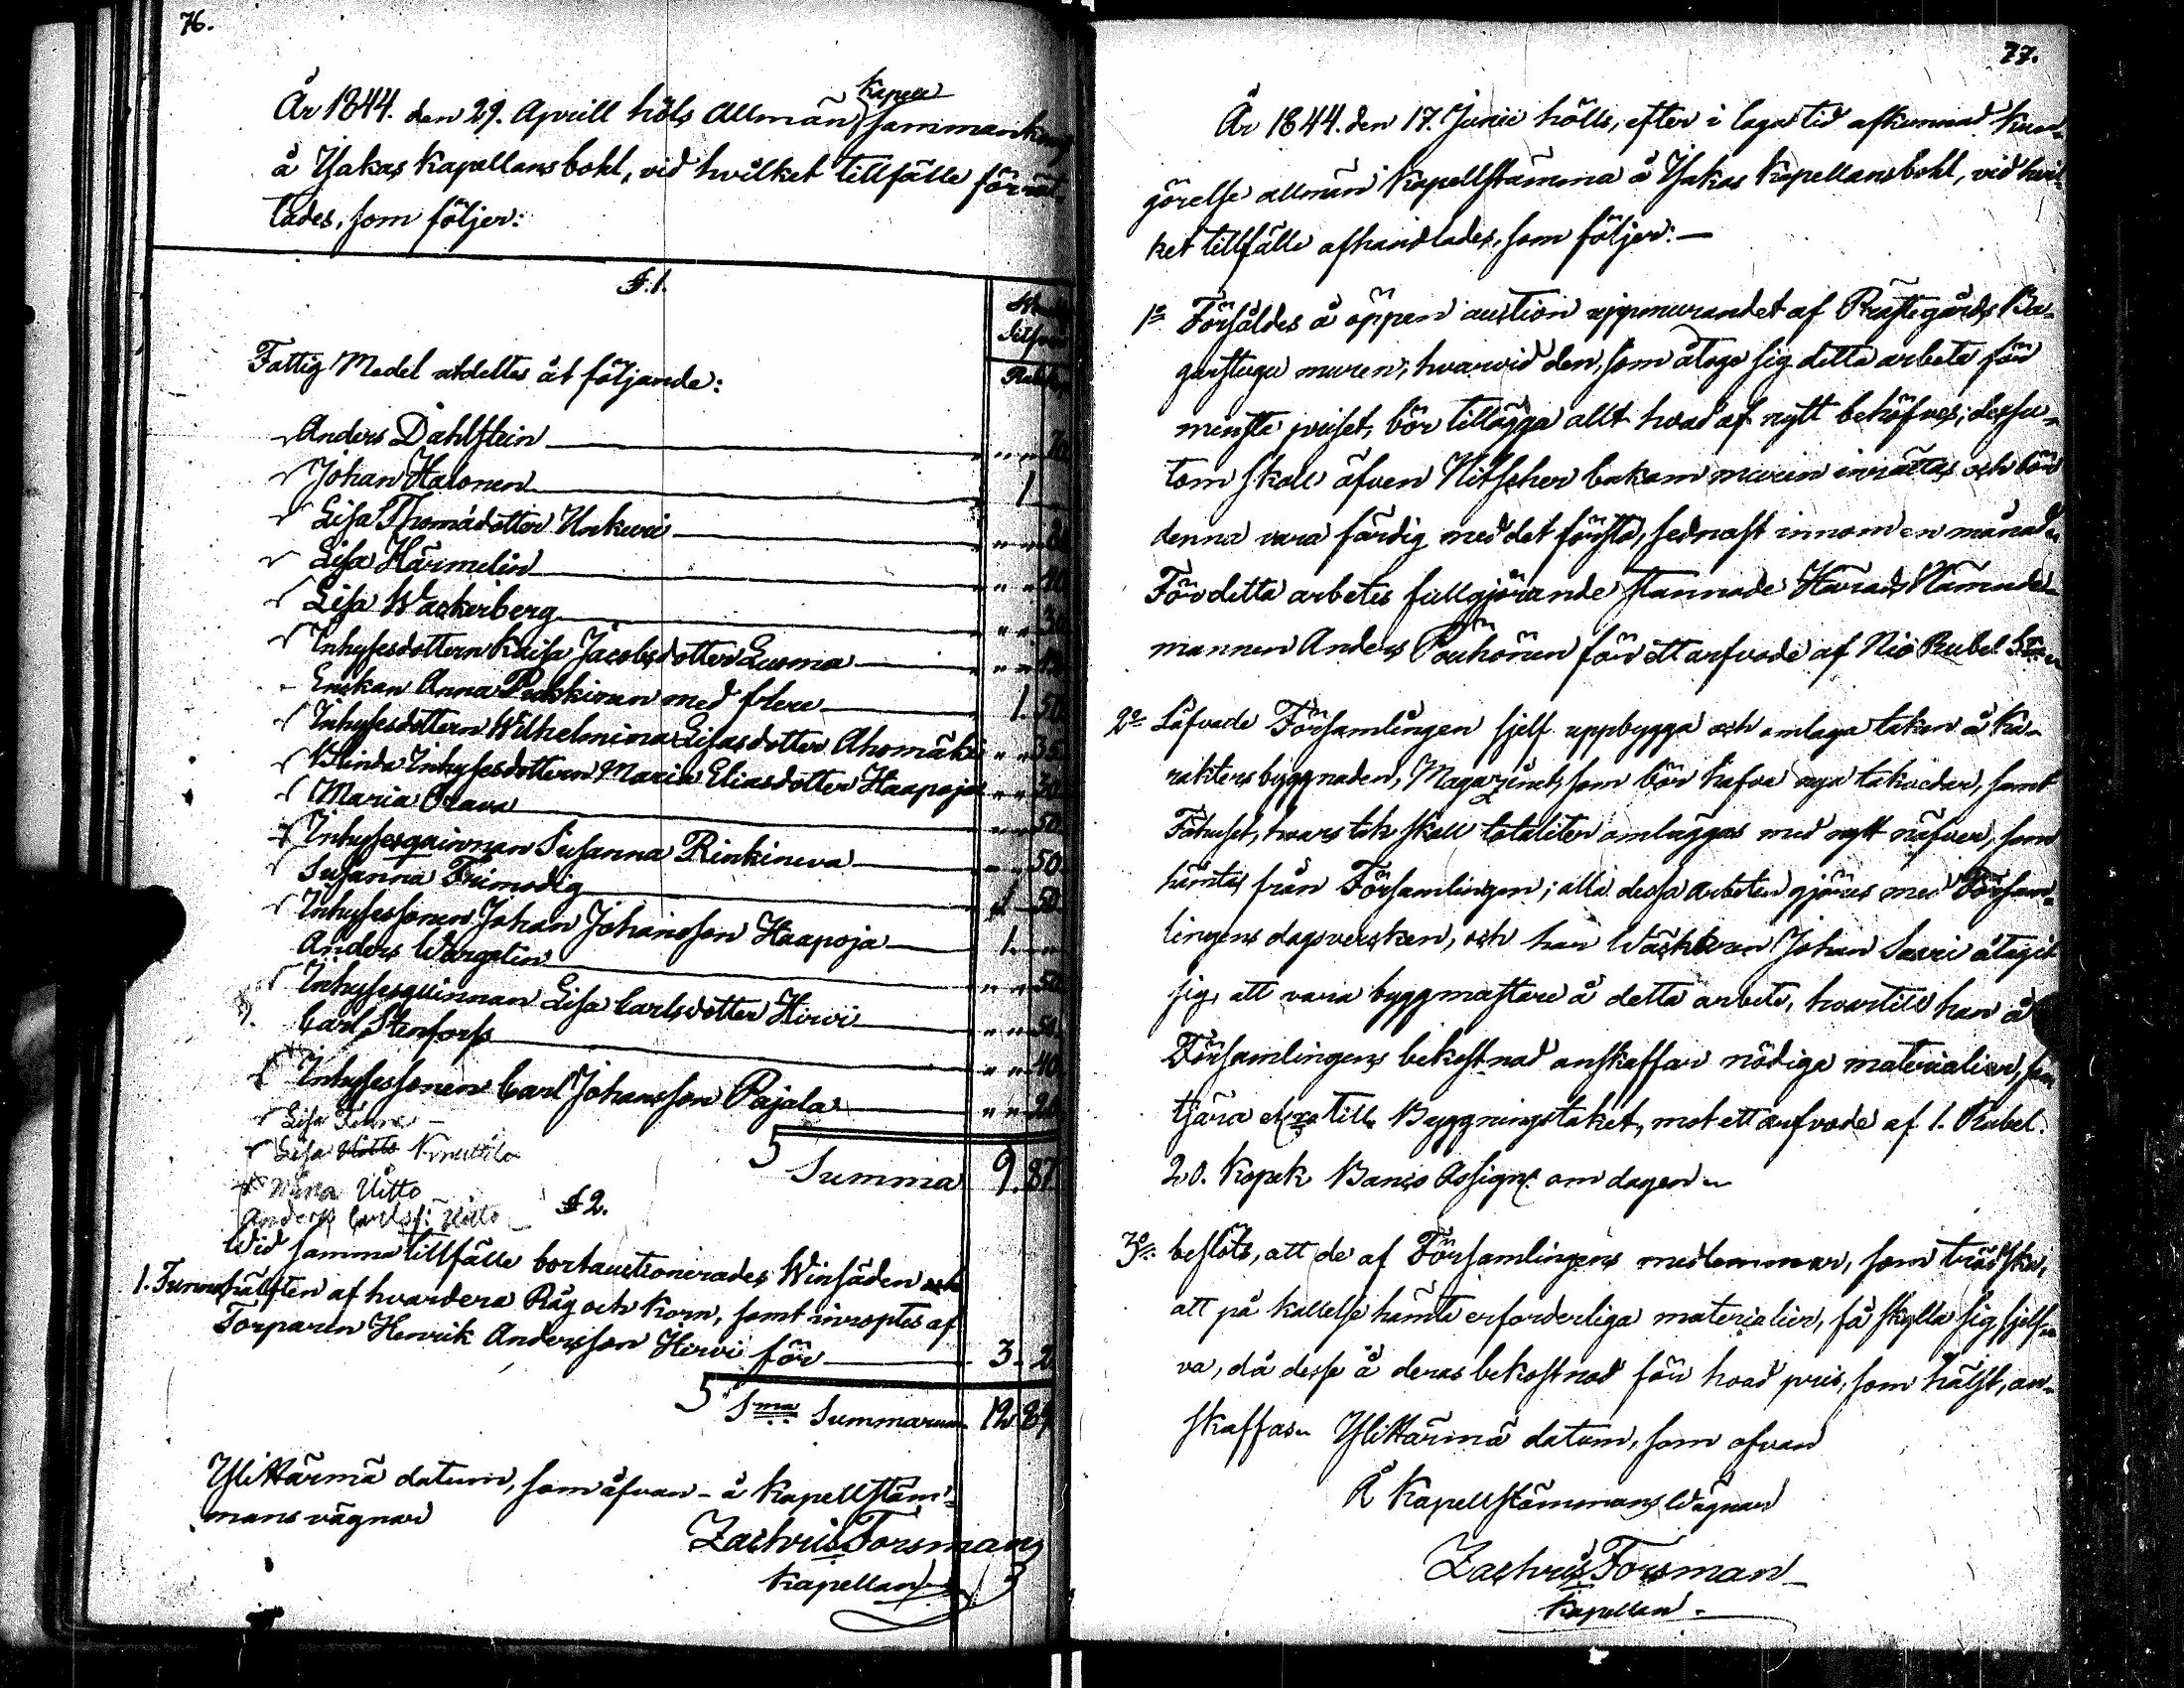 76.
År 1844. den 29. Aprill höls Allmän Kapell sammankomst
å Ylakas Kapellansbohl, vid hvilket tillfälle förrät-
tades, som följer:
§.1.
Silfver
Fattig Medel utdeltes åt följande:
Anders Dahlstein
Johan Halonen 1
Lisa Thomædotter Unkuri
Lisa Härmelin
Lisa Wackerberg
Inhysesdottern Kaisa Jacobsdotter Luoma
Enckan Anna med flere 1. 50
Inhysesdottern Wilhelmina Lisasdotter Ahomäki " " 35
Blinda Inhysesdottern Maria Eliasdotter Haapoja " " 30
Maria Orava 50
Inhysesqvinnan Susanna Rinkineva " " 50
Susanna Frimodig 50
Inhysessonen Johan Johansson Haapoja 1.
Anders Wargelin " " 50
Inhysesqvinnan Lisa Carlsdotter Hirvi " " 50.
Carl Stenforss " " 40
Inhysessonen Carl Johansson Pajala " " 20
Lisa
Lisa Uitto Knuttila
Summa 9. 87.
Uitto
Anders Carlss: Uitto
§ 2.
Wid samma tillfälle bortauctionerades Winsäden och
1. Tunna hälften af hvardera Råg och Korn, samt inroptes af
Torparen Henrik Andersson Hirvi för 3 - 2.
Sma Summarum 12. 89
Ylihärmä datum, som åfvan - å Kapellstäm-
mans vägnar
Zachris Forsman
Kapellan
77.
År 1844. den 17. Junii hölls, efter i laga tid afkunnad Kun-
görelse allmän Kapellstämma å Ylakas Kapellansbohl, vid hvil-
ket tillfälle afhandlades, som följer: —
1o Försåldes å öppen auction uppmurandet af Prästegårds Ba-
garstugu muren, hvarvid den, som åtoge sig detta arbete för
minsta priset, bör tillägga allt hvad af nytt behöfves; dessu-
tom skall äfven bakom muren inrättas och bör
denna vara färdig med det första, sednast innom en månad.
För detta arbetes fullgjörande stannade Härads Nämnde-
mannen Anders Pouhonen för ett arfvode af Nio Rubel
2o Låfvade Församlingen sjelf uppbygga och omlaga taken å Ka-
raktersbyggnaden, Magazinet, som bör hafva nya takveder, samt
Fähuset, hvars tak skall totaliter omläggas med nytt näfver, som
hämtas från Församlingen; alla dessa arbeten gjöres med Försam-
lingens dagsverken, och har Wäcktaren Johan Saari åtagit
sig, att vara byggmästare å detta arbete, hvartill han å
Församlingens bekostnad anskaffar nödiga materialier, som
tjära etc till Byggningstaket, mot ett arfvode af 1. Rubel.
20. Kopek Banco Assign: om dagen
3o beslöts, att de af Församlingens medlemmar, som trädska,
att på kallelse hämta erforderliga materialier, få skylla sig sjelf-
va, då desse å deras bekostnad för hvad pris, som hälst, an-
skaffas. Ylihärmä datum, som ofvan
Å Kapellstämmans Wägnar
Zachris Forsman
Kapellan.